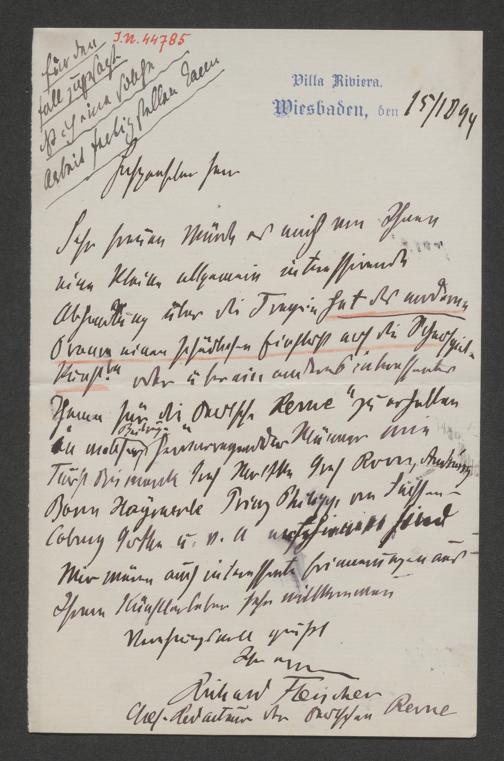 I.N. 44785
für den
fall zusagt
Arbeit
Villa Riviera.
Wiesbaden, den 15/1894
Hochgeehrter Herr
Sehr freuen würde es mich von Ihnen
eine kleine allgemein interessirende
Abhandlung über die Frage: hat das moderne
Drama einen schädlichen Einfluss auf die Schauspiel-
kunst? oder über ein anderes interessantes
Thema für die Deutsche Revue zu erhalten
in welcher Beiträge hervorragender Männer wie
Fürst Bismarck Graf Moltke Graf Roon,
Baron Haymerle Prinz Philipp von Sachsen-
Coburg Gotha u. v. A erschienen sind
Mir wären auch interessante Erinnerungen aus
Ihrem Künstlerleben sehr willkommen
Verehrungsvoll grüsst
Ihr
Richard Fleischer
Chef-Redacteur der Deutschen Revue